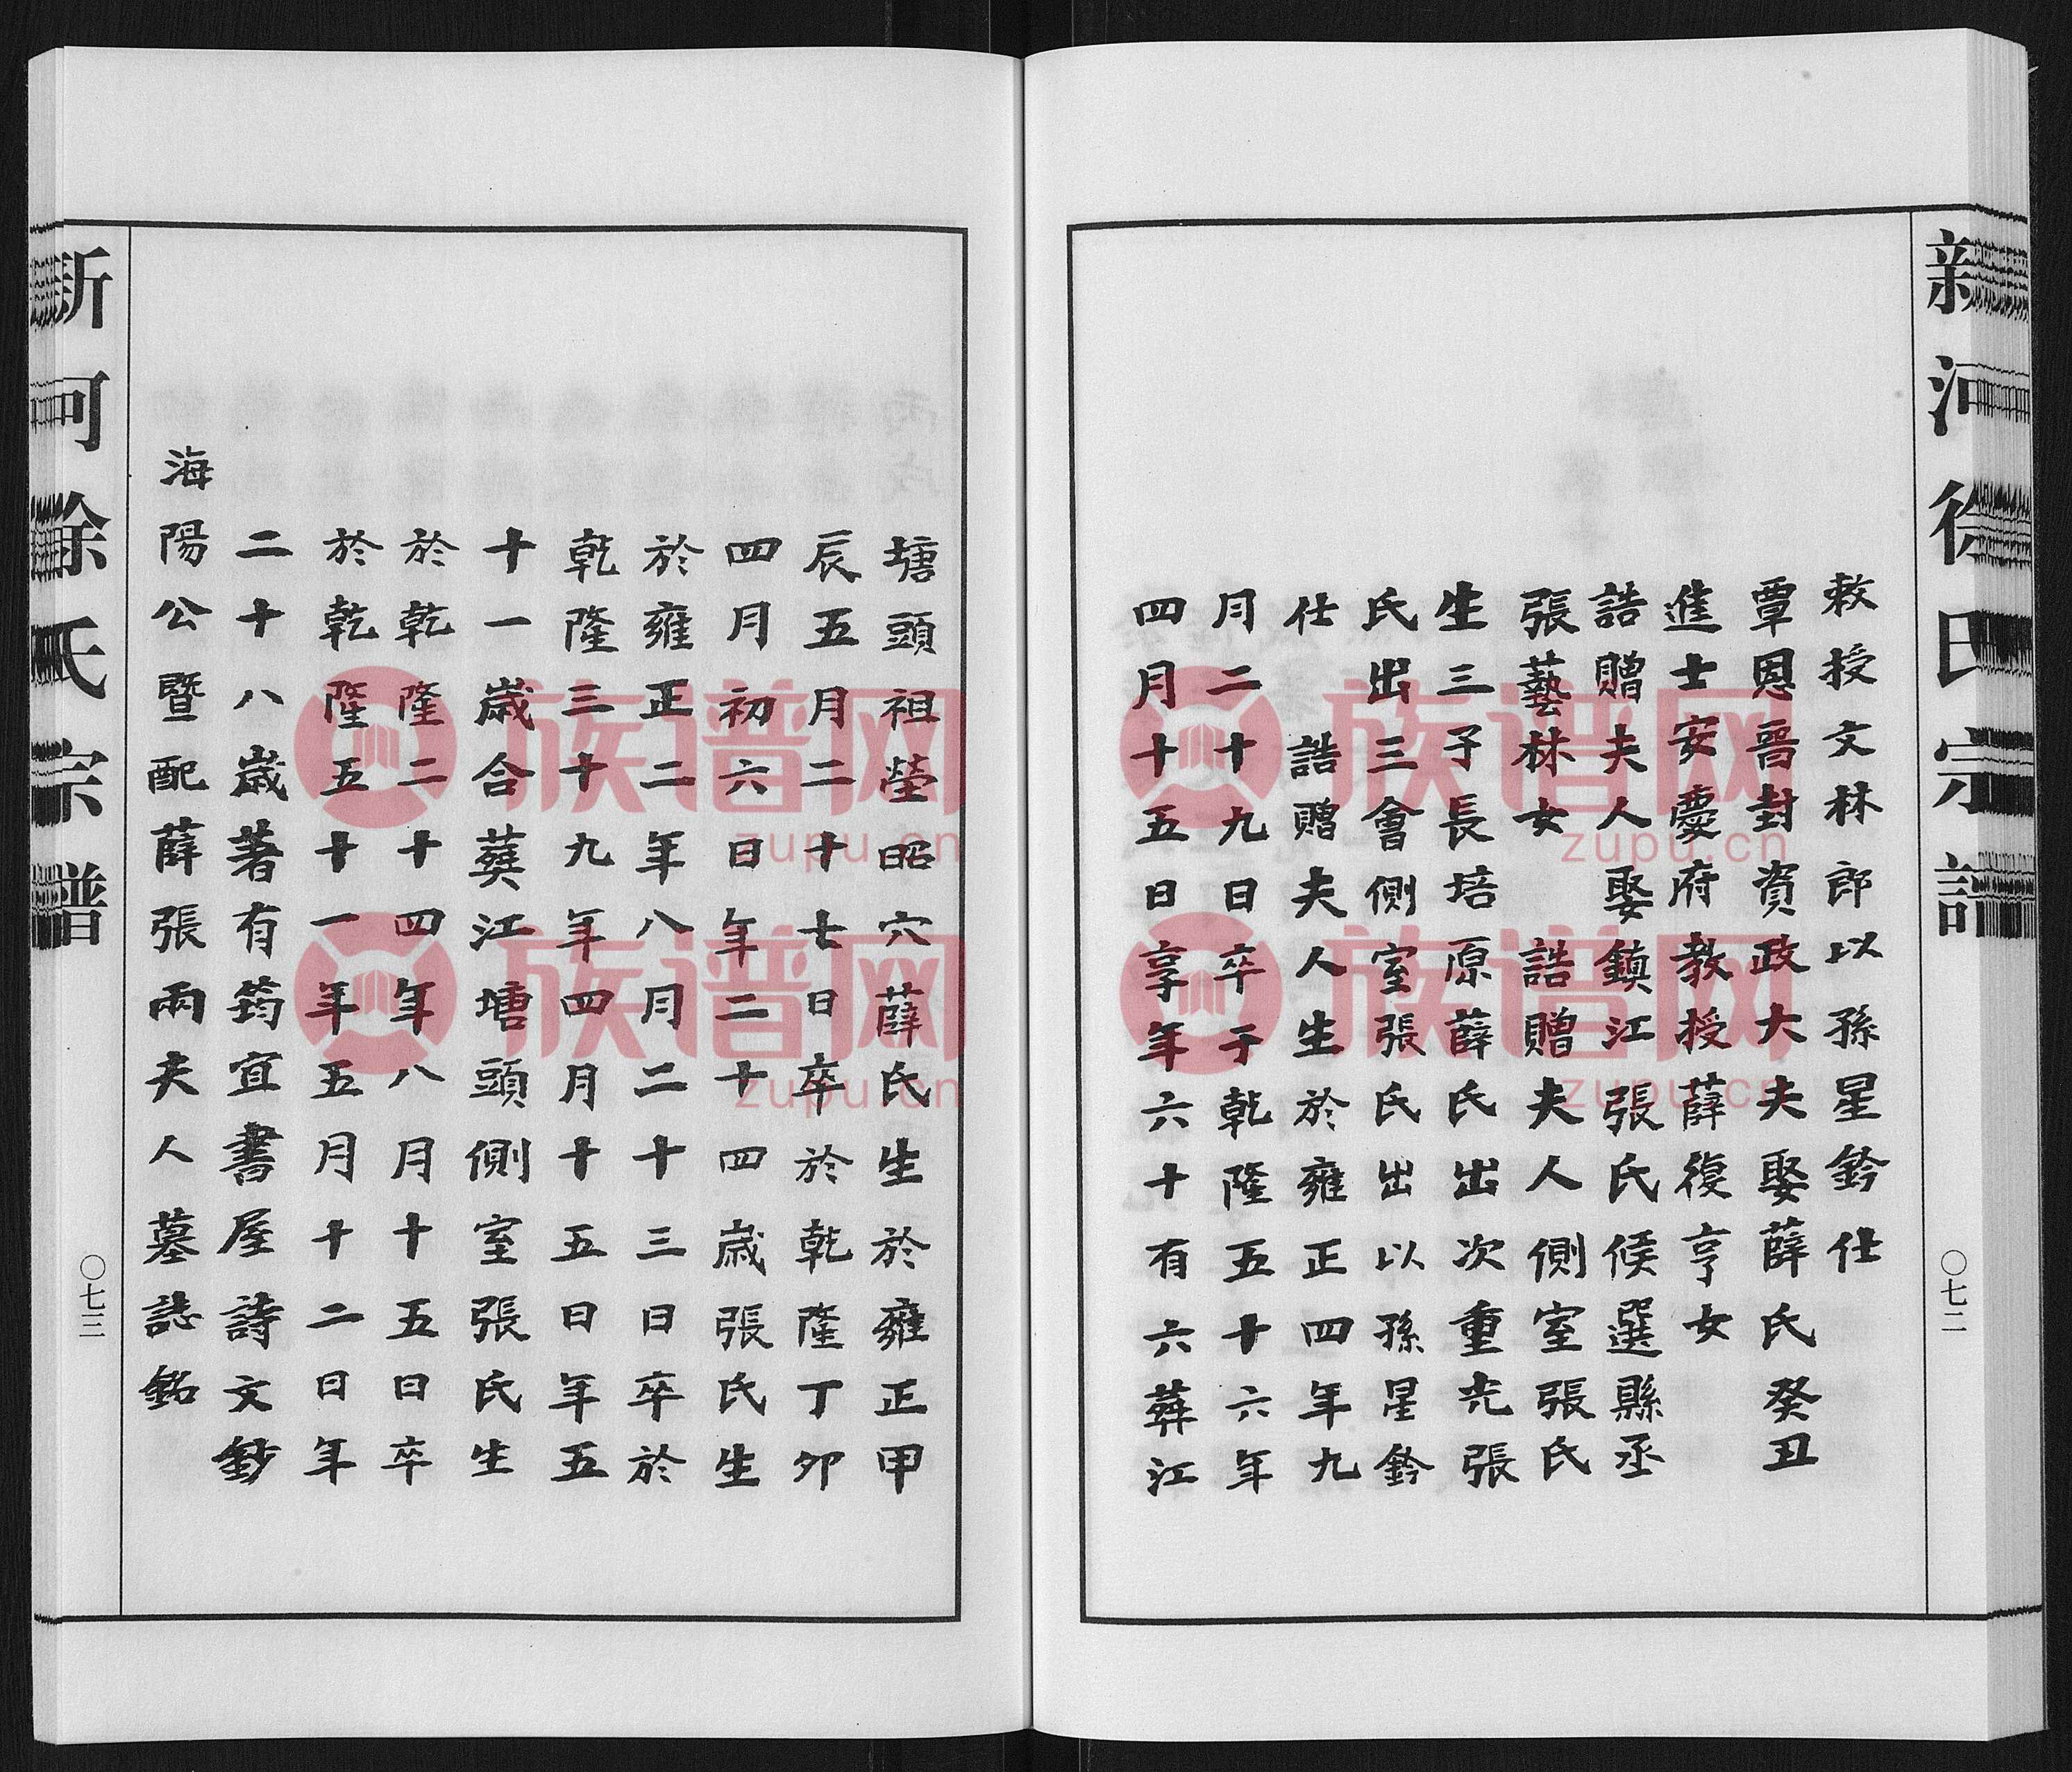 新河徐氏宗譜
〇七二
敕授文林郎以孫星鈐仕
覃恩晉封資政大夫娶薛氏癸丑
進士安慶府教授薛復亨女
誥贈夫人娶鎮江張氏候選縣丞
張藝林女誥贈夫人側室張氏
生三子長培原薛氏出次重光張
氏出三會側室張氏出以孫星鈐
仕誥贈夫人生於雍正四年九
月二十九日卒于乾隆五十六年
四月十五日享年六十有六葬江
塘頭祖塋昭穴薛氏生於雍正甲
辰五月二十七日卒於乾隆丁卯
四月初六日年二十四歲張氏生
於雍正二年八月二十三日卒於
乾隆三十九年四月十五日年五
十一歲合葬江塘頭側室張氏生
於乾隆二十四年八月十五日卒
於乾隆五十一年五月十二日年
二十八歲著有筠宜書屋詩文鈔
海陽公暨配薛張兩夫人墓誌銘
新河徐氏宗譜
〇七三
族谱网
zupu.cn
族谱网
zupu.cn
族谱网
zupu.cn
族谱网
zupu.cn